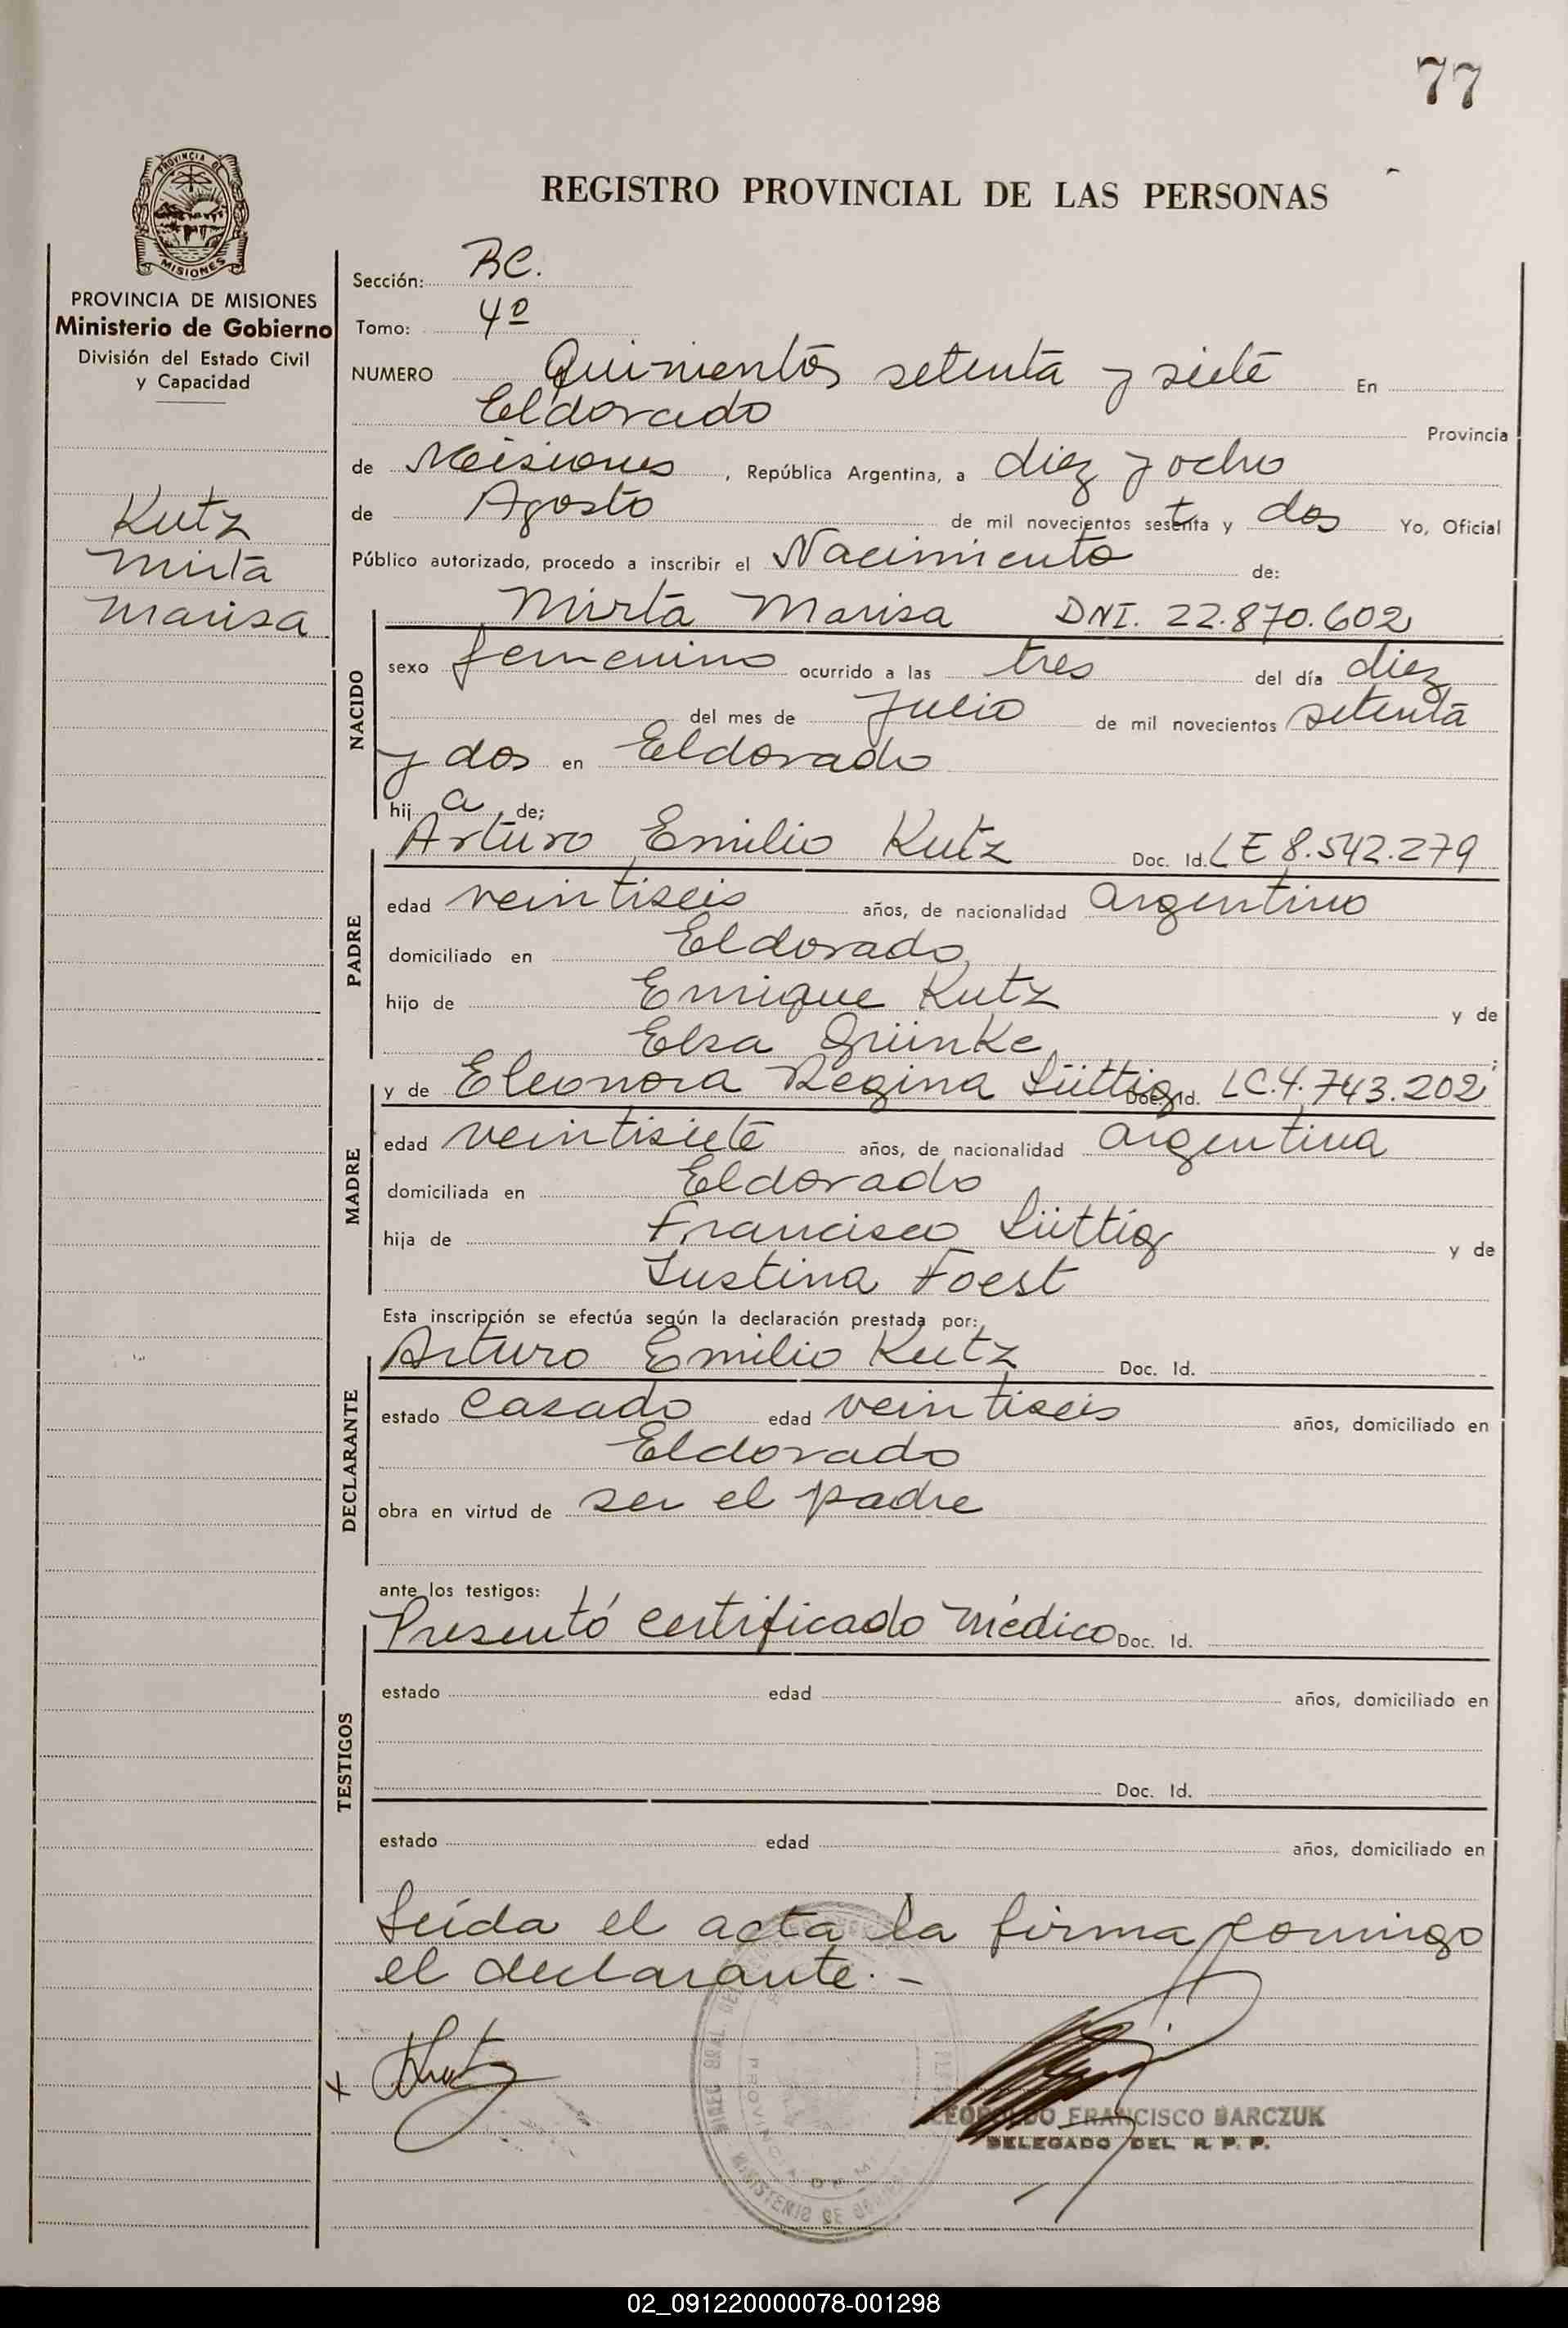 77
REGISTRO PROVINCIAL DE LAS PERSONAS
PROVINCIA DE
MISIONES
PROVINCIA DE MISIONES
Ministerio de Gobierno
División del Estado Civil
y Capacidad
Kutz
Mirta
Marisa
Sección: RC.
Tomo: 4º
NUMERO Quinientos setenta y siete En
Eldorado Provincia
de Misiones, República Argentina, a diez y ocho
de Agosto de mil novecientos setenta y dos Yo, Oficial
Público autorizado, procedo a inscribir el Nacimiento de:
Mirta Marisa DNI. 22.870.602
NACIDO
sexo femenino ocurrido a las tres del día diez
del mes de Julio de mil novecientos setenta
y dos en Eldorado
hij a de;
Arturo Emilio Kutz Doc. Id. LE 8.542.279
PADRE
edad veintiseis años, de nacionalidad argentino
domiciliado en Eldorado
hijo de Enrique Kutz y de
Elsa Grünke
y de Eleonora Regina Lüttig Doc. Id. LC.4.743.202
MADRE
edad veintisiete años, de nacionalidad argentina
domiciliada en Eldorado
hija de Francisco Lüttig y de
Justina Foest
Esta inscripción se efectúa según la declaración prestada por:
Arturo Emilio Kutz Doc. Id.
DECLARANTE
estado casado edad veintiseis años, domiciliado en
Eldorado
obra en virtud de ser el padre
ante los testigos:
Presentó certificado médico Doc. Id.
TESTIGOS
estado edad años, domiciliado en
Doc. Id.
estado edad años, domiciliado en
Leída el acta la firma comigo
el declarante.-
x Kutz
LEOPOLDO FRANCISCO BARCZUK
DELEGADO DEL R. P. P.
02_091220000078-001298